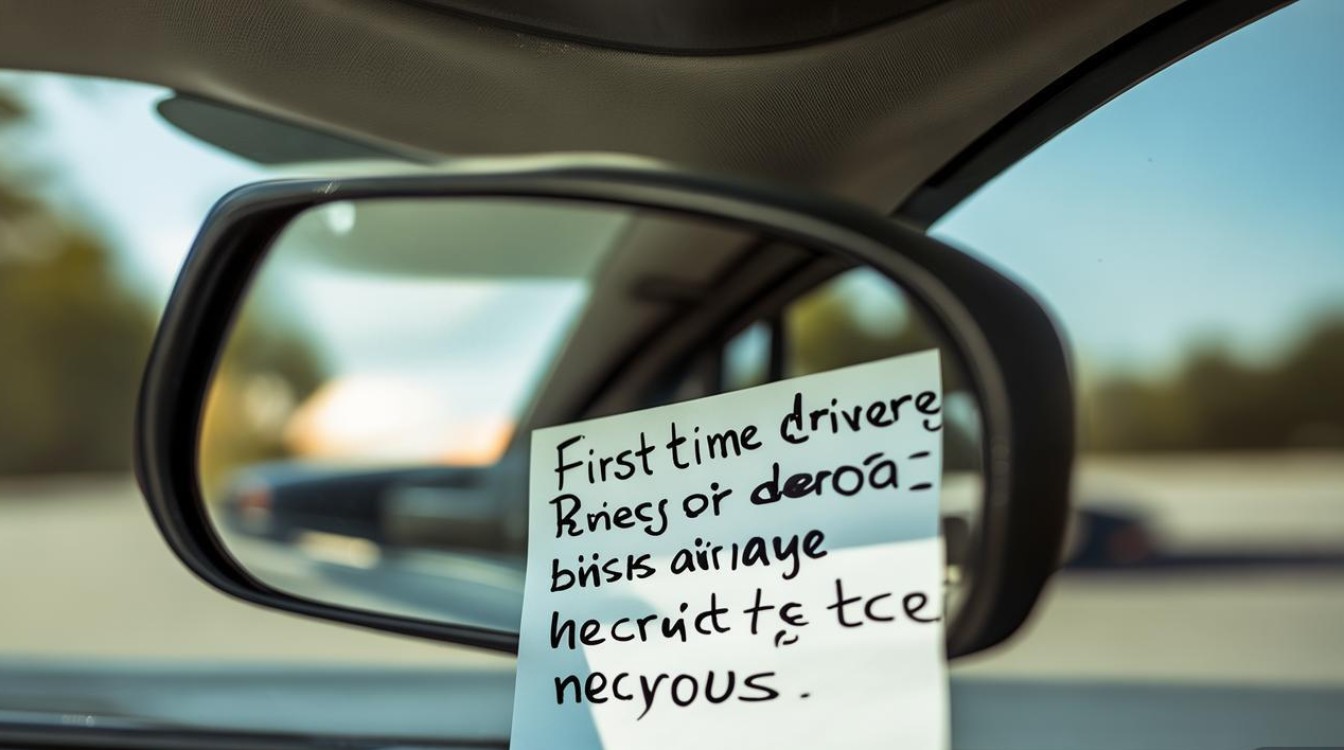 First time drivere
Rniecs or deroa -
biisis airiaye
hecruit te tce
necyous.